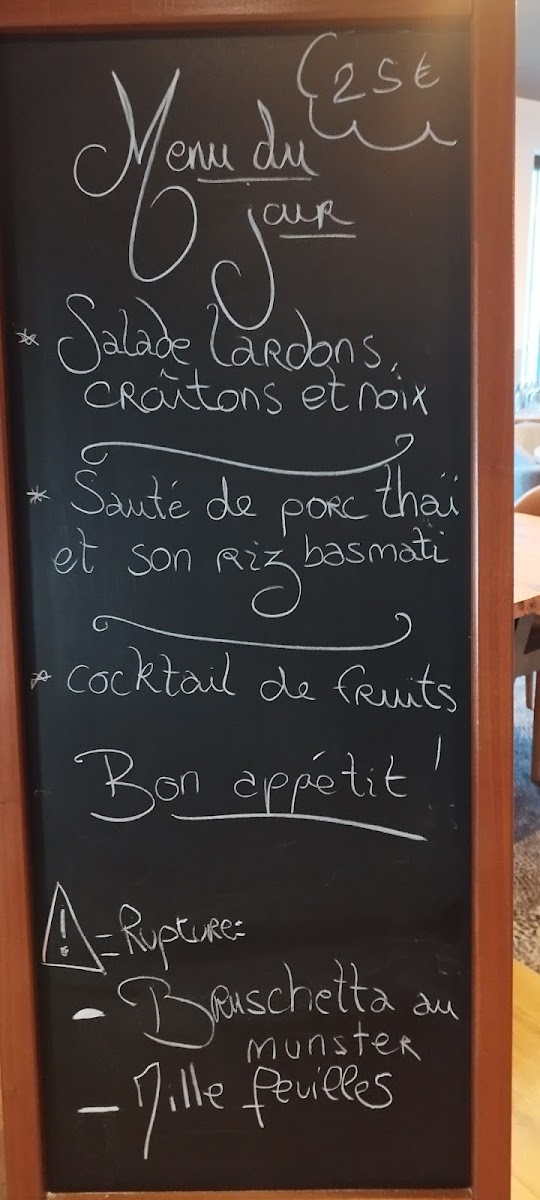 25€
Menu du
jour
* Salade lardons,
craîtons et noix
* Sauté de porc thaï
et son riz basmati
* cocktail de fruits
Bon appétit !
! = Rupture:
- Bruschetta au
munster
- Mille feuilles